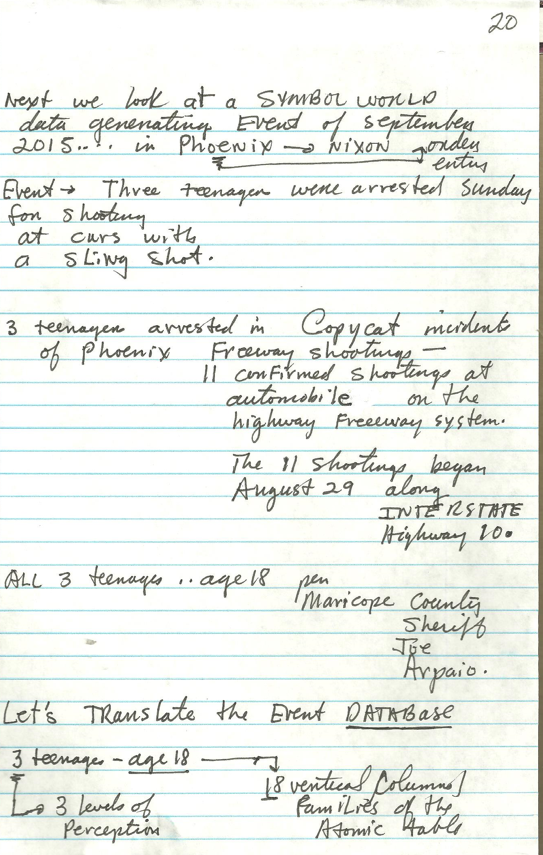 20
Next we look at a SYMBOL WORLD
data generating Event of september
2015.... in Phoenix → NIXON order
entry
Event → Three teenager were arrested Sunday
for shooting
at cars with
a sling shot.
3 teenager arrested in Copycat incidents
of Phoenix Freeway shootings —
11 confirmed shootings at
automobile on the
highway Freeway system.
The 11 shootings began
August 29 along
INTERSTATE
Highway 10.
ALL 3 teenages .. age 18 per
Maricope County
Sheriff
Joe
Arpaio.
Let's TRANslate the Event DATABASE
3 teenages - age 18 →
18 vertical Columns/
→ 3 levels of Families of the
Perception Atomic table